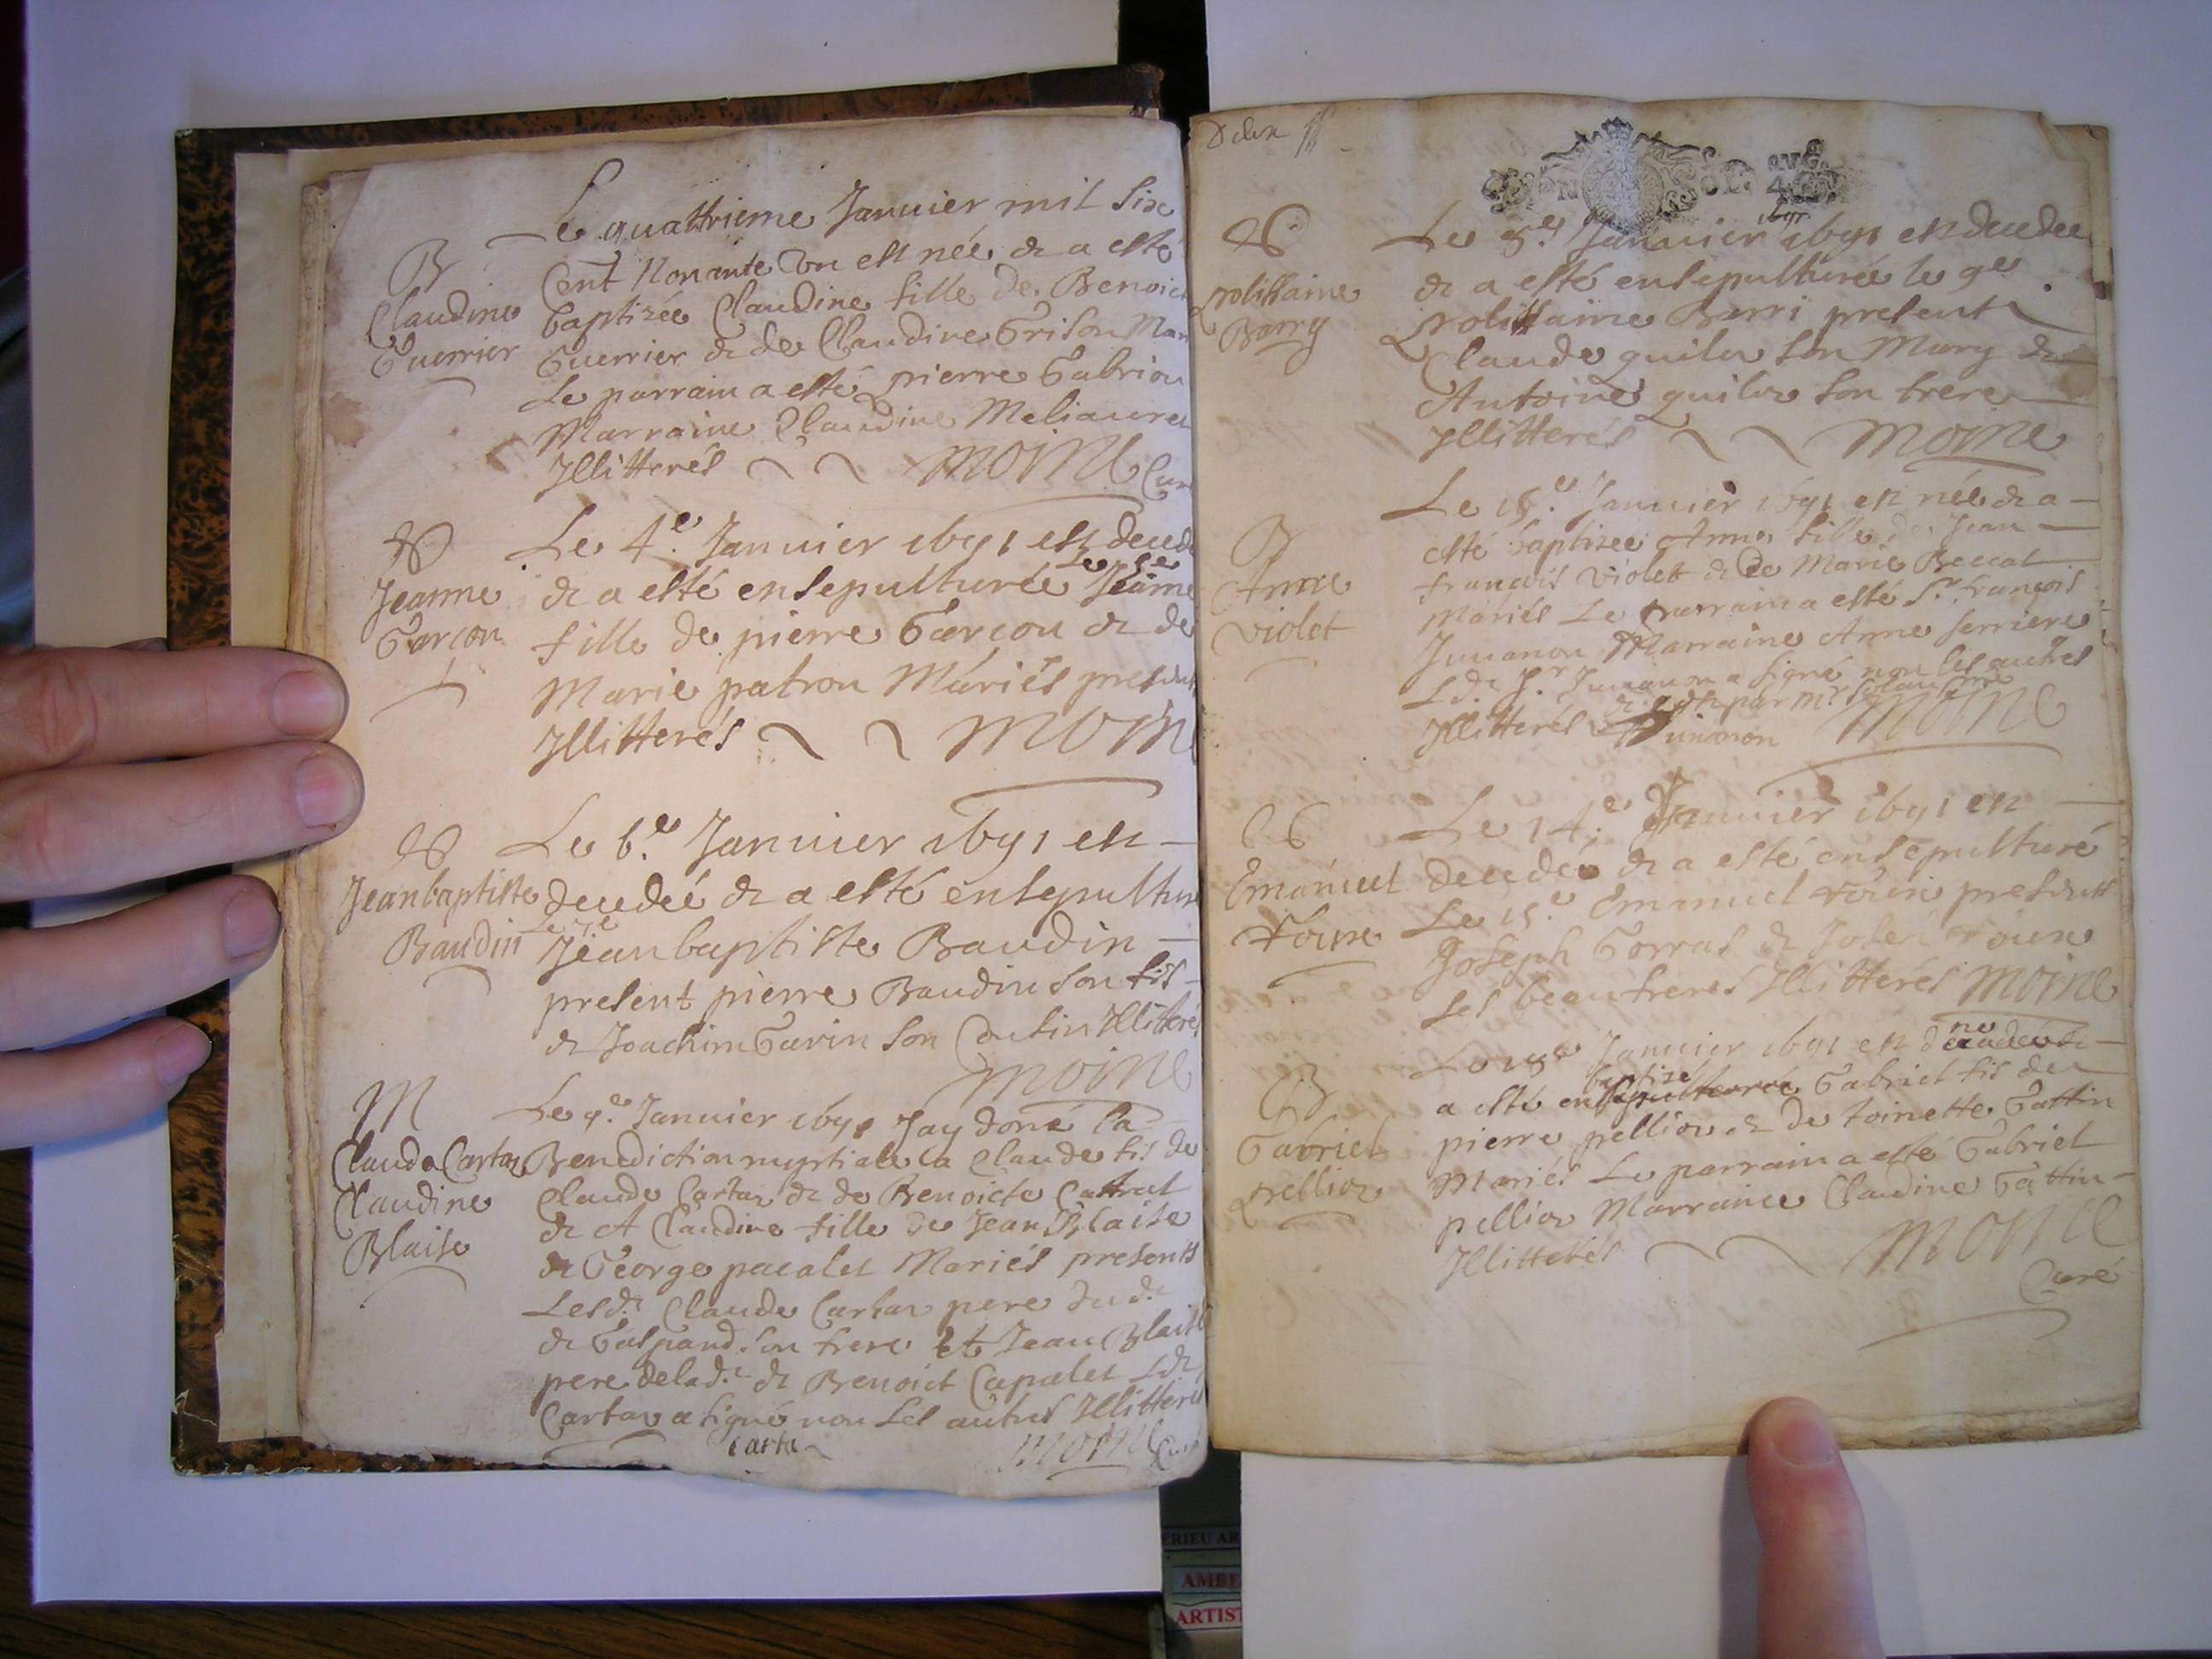 B
Claudine
Guerrier
Le quattrieme Januier mil six
Cent Nonante Un est née & a esté
baptizée Claudine fille de Benoict
Guerrier & de Claudine Grison Mar
Le parrain a esté pierre Gabriou
Marraine Claudine Meliauret
Jllitterés moine Cur
Jeanne
Garcon
Le 4.e Januier 1691 est deced
& a esté ensepulturée Jeanne
fille de pierre Garcon & de
Marie patron Mariés present
Jllitterés moin
Jeanbaptiste
Baudin
Le 6.e Januier 1691 est
decedé & a esté ensepultur
Le 7e
Jeanbaptiste Baudin
present pierre Baudin son fis
& Joachim Garin son Cousin Jllitteré
moine
M
Claude Cartar
Claudine
Blaise
Le 9.e Januier 1691 Jay doné la
Benediction nuptiale a Claude fis de
Claude Cartar & de Benoicte Cattrat
& A Claudine fille de Jean Blaise
& George pacalet Mariés presents
Lesd. Claude Cartar pere du d.
& Gaspard son frere et Jean Blaise
pere delad. & Benoict Capalet Ld
Cartar a signé non les autres Jllitteré
carta moine Cur
Deux
GEN
LYON
4
Le 8.e Januier 1691 est decedee
& a esté ensepulturée le 9e
Barry
Berri present
Claude quiler son Mary &
Antoine quiler son frere
Jllitterés moine
B
Anne
Violet
Le 15.e Januier 1691 est née & a
esté baptizee Anne fille de Jean
francois Violet & de Marie Baccat
Mariés Le parrain a esté Sr. francois
Juuanon Marraine Anne ferriere
Ld. Sr. Juuanon a signé non les autres
Jllitterés Juuanon moine
Emanuel
Le 14.e Januier 1691 est
decedé & a esté ensepulturé
Le 15.e Emanuel presents
Joseph Gorras &
ses beaufreres Jllitterés moine
B
Gabriel
pellion
Le 18e Januier 1691 est né
a esté baptizé Gabriel fis de
pierre pellion & de toinette Gattin
Mariés Le parrain a esté Gabriel
pellion Marraine Claudine Gattin
Jllitterés moine
Curé
AMBE
ARTIST